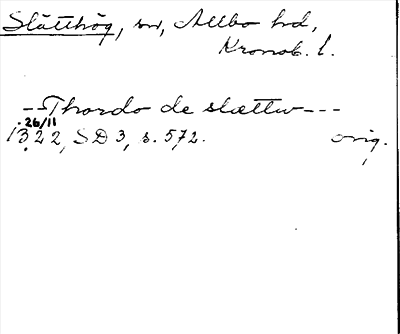 Slätthög, sn, Allbo hd,
Kronob. l.
-- Thordo de slættu ---
26/11
1322, SD 3, s. 572.
orig.